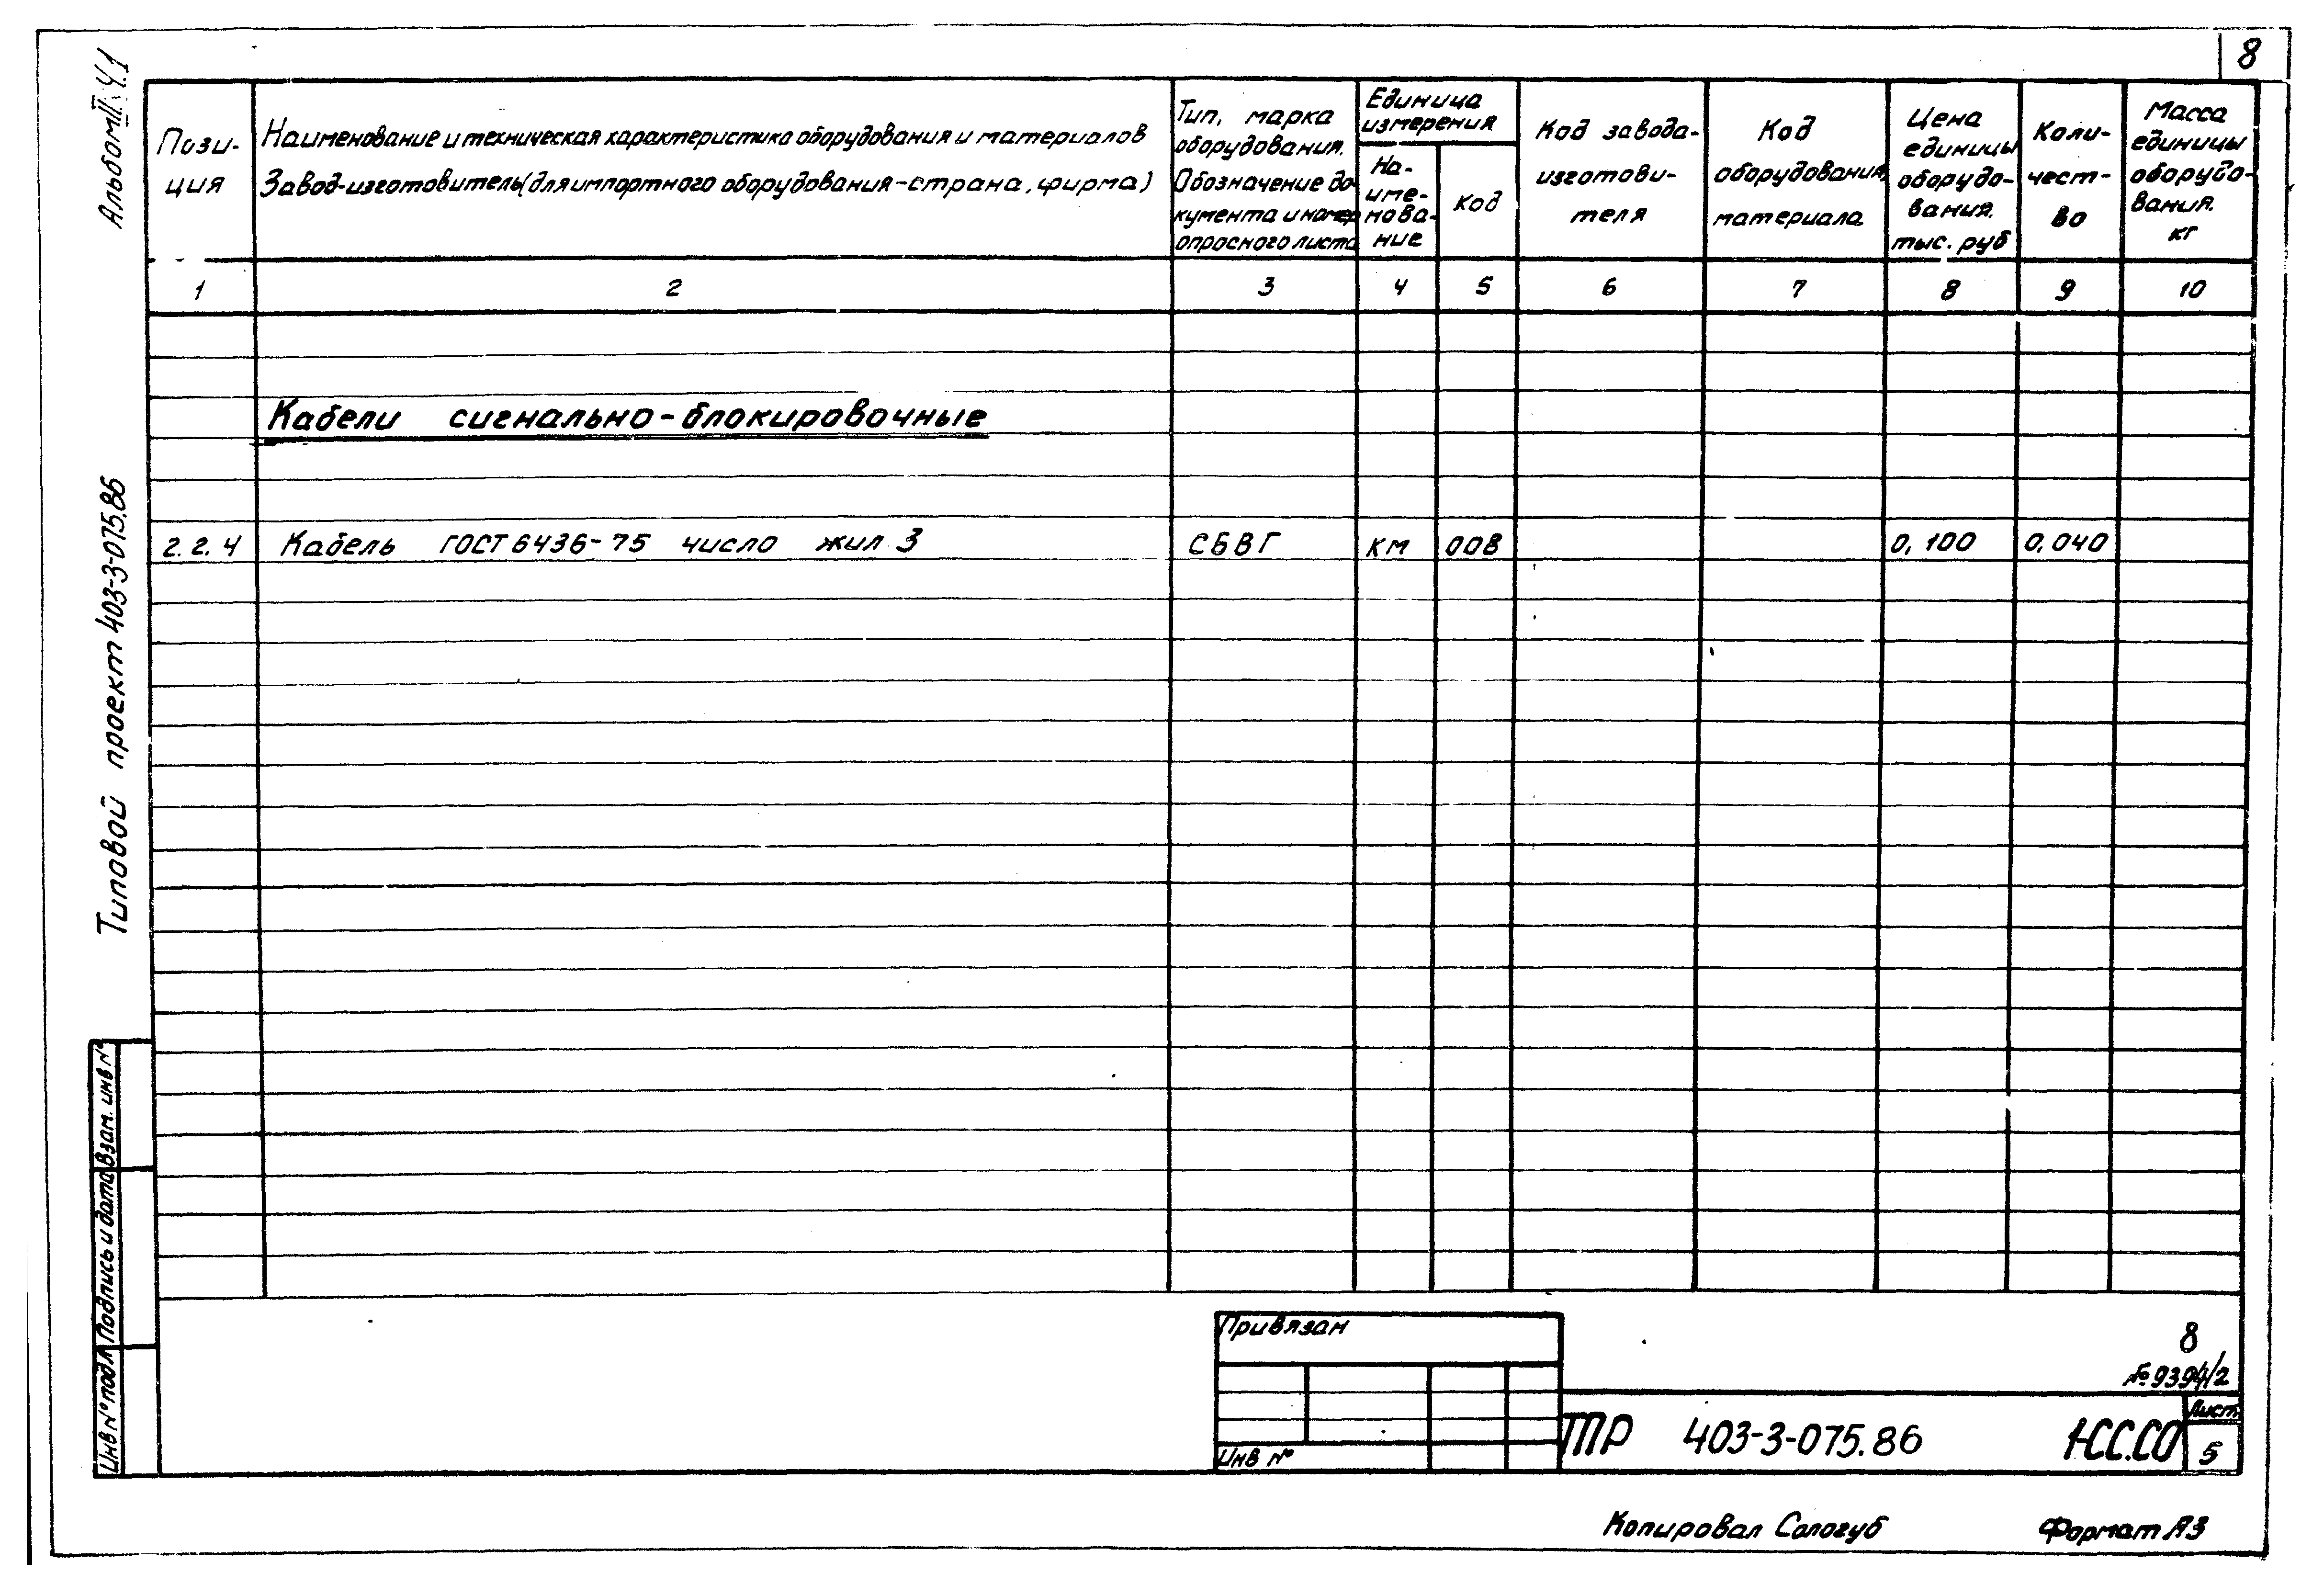 8
Альбом II ч.1
Типовой проект 403-3-075.86
Пози-
ция
Наименование и техническая характеристика оборудования и материалов
Завод-изготовитель (для импортного оборудования-страна, фирма)
Тип, марка
оборудования.
Обозначение до-
кумента и номер
опросного листа
Единица
измерения
На-
име-
нова-
ние
Код
Код завода-
изготови-
теля
Код
оборудования,
материала
Цена
единицы
оборудо-
вания,
тыс. руб
Коли-
чест-
во
Масса
единицы
оборудо-
вания,
кг
1 2 3 4 5 6 7 8 9 10
Кабели сигнально-блокировочные
2.2.4 Кабель ГОСТ 6436-75 число жил 3 СБВГ км 008 0,100 0,040
Взам. инв №
Подпись и дата
Инв № подл
Привязан
Инв №
8
№ 9394/2
ТР 403-3-075.86 1-СС.СО
Лист
5
Копировал Сологуб Формат А3